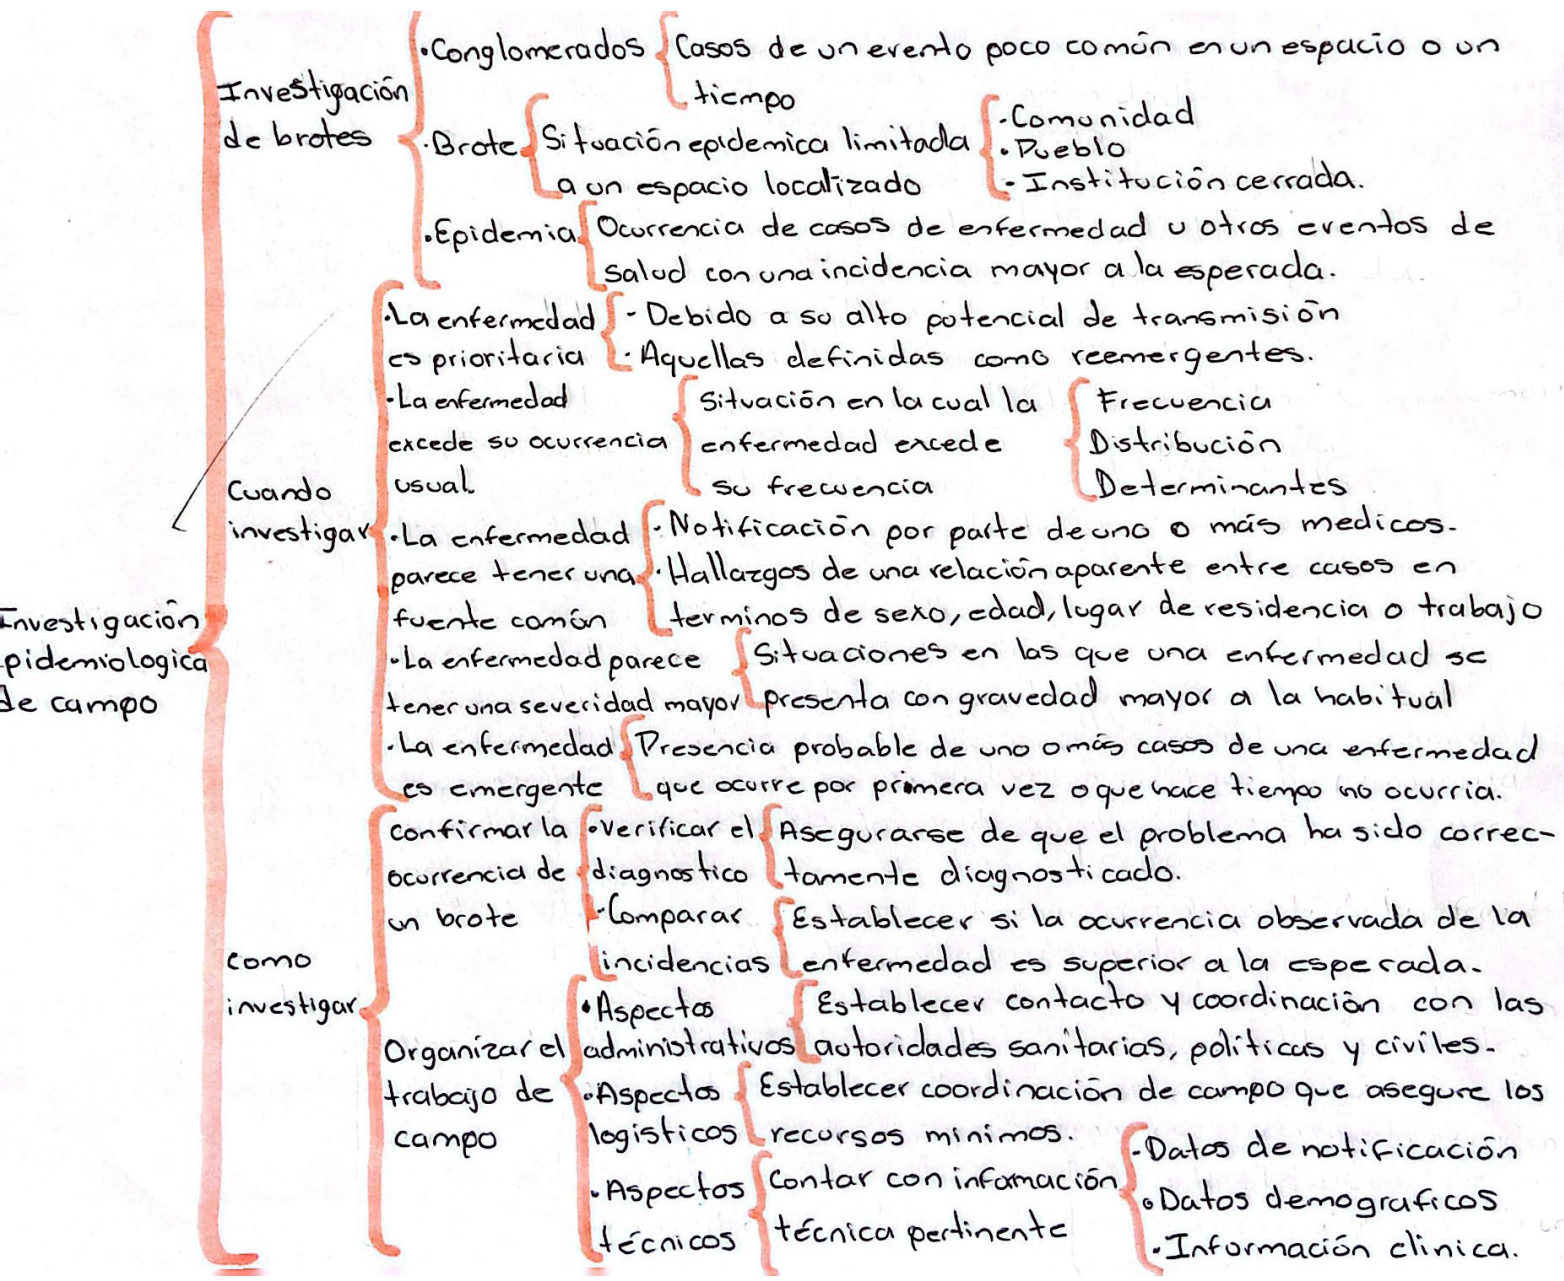 Investigación
epidemiologica
de campo
Investigación
de brotes
·Conglomerados
Casos de un evento poco común en un espacio o un
tiempo
·Brote
Situación epidemica limitada
a un espacio localizado
·Comunidad
·Pueblo
·Institución cerrada.
·Epidemia
Ocurrencia de casos de enfermedad u otros eventos de
salud con una incidencia mayor a la esperada.
Cuando
investigar
·La enfermedad
es prioritaria
·Debido a su alto potencial de transmisión
·Aquellas definidas como reemergentes.
·La enfermedad
excede su ocurrencia
usual.
Situación en la cual la
enfermedad excede
su frecuencia
Frecuencia
Distribución
Determinantes
·La enfermedad
parece tener una
fuente común
·Notificación por parte de uno o más medicos.
·Hallazgos de una relación aparente entre casos en
terminos de sexo, edad, lugar de residencia o trabajo
·La enfermedad parece
tener una severidad mayor
Situaciones en las que una enfermedad se
presenta con gravedad mayor a la habitual
·La enfermedad
es emergente
Presencia probable de uno o más casos de una enfermedad
que ocurre por primera vez o que hace tiempo no ocurria.
como
investigar
confirmar la
ocurrencia de
un brote
·verificar el
diagnostico
Asegurarse de que el problema ha sido correc-
tamente diagnosticado.
·Comparar
incidencias
Establecer si la ocurrencia observada de la
enfermedad es superior a la esperada.
Organizar el
trabajo de
campo
·Aspectos
administrativos
Establecer contacto y coordinación con las
autoridades sanitarias, políticas y civiles.
·Aspectos
logísticos
Establecer coordinación de campo que asegure los
recursos minimos.
·Aspectos
técnicos
Contar con información
técnica pertinente
·Datos de notificación
·Datos demograficos
·Información clinica.